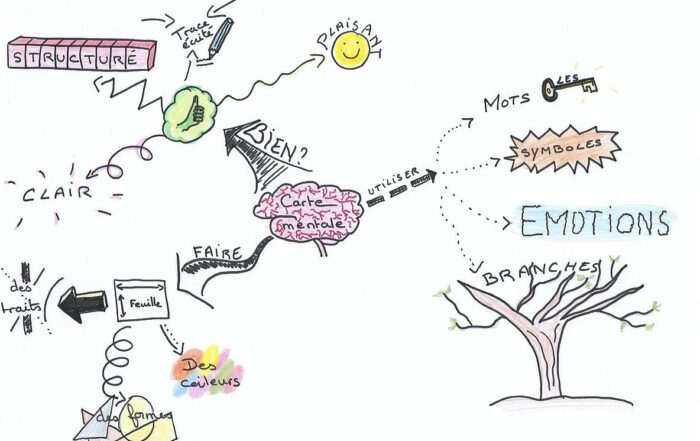 Trace
écrite
PLAISANT
STRUCTURÉ
BIEN?
CLAIR
Carte
mentale
UTILISER
MOTS
LES
SYMBOLES
EMOTIONS
BRANCHES
FAIRE
des
traits
Feuille
Des
couleurs
des formes